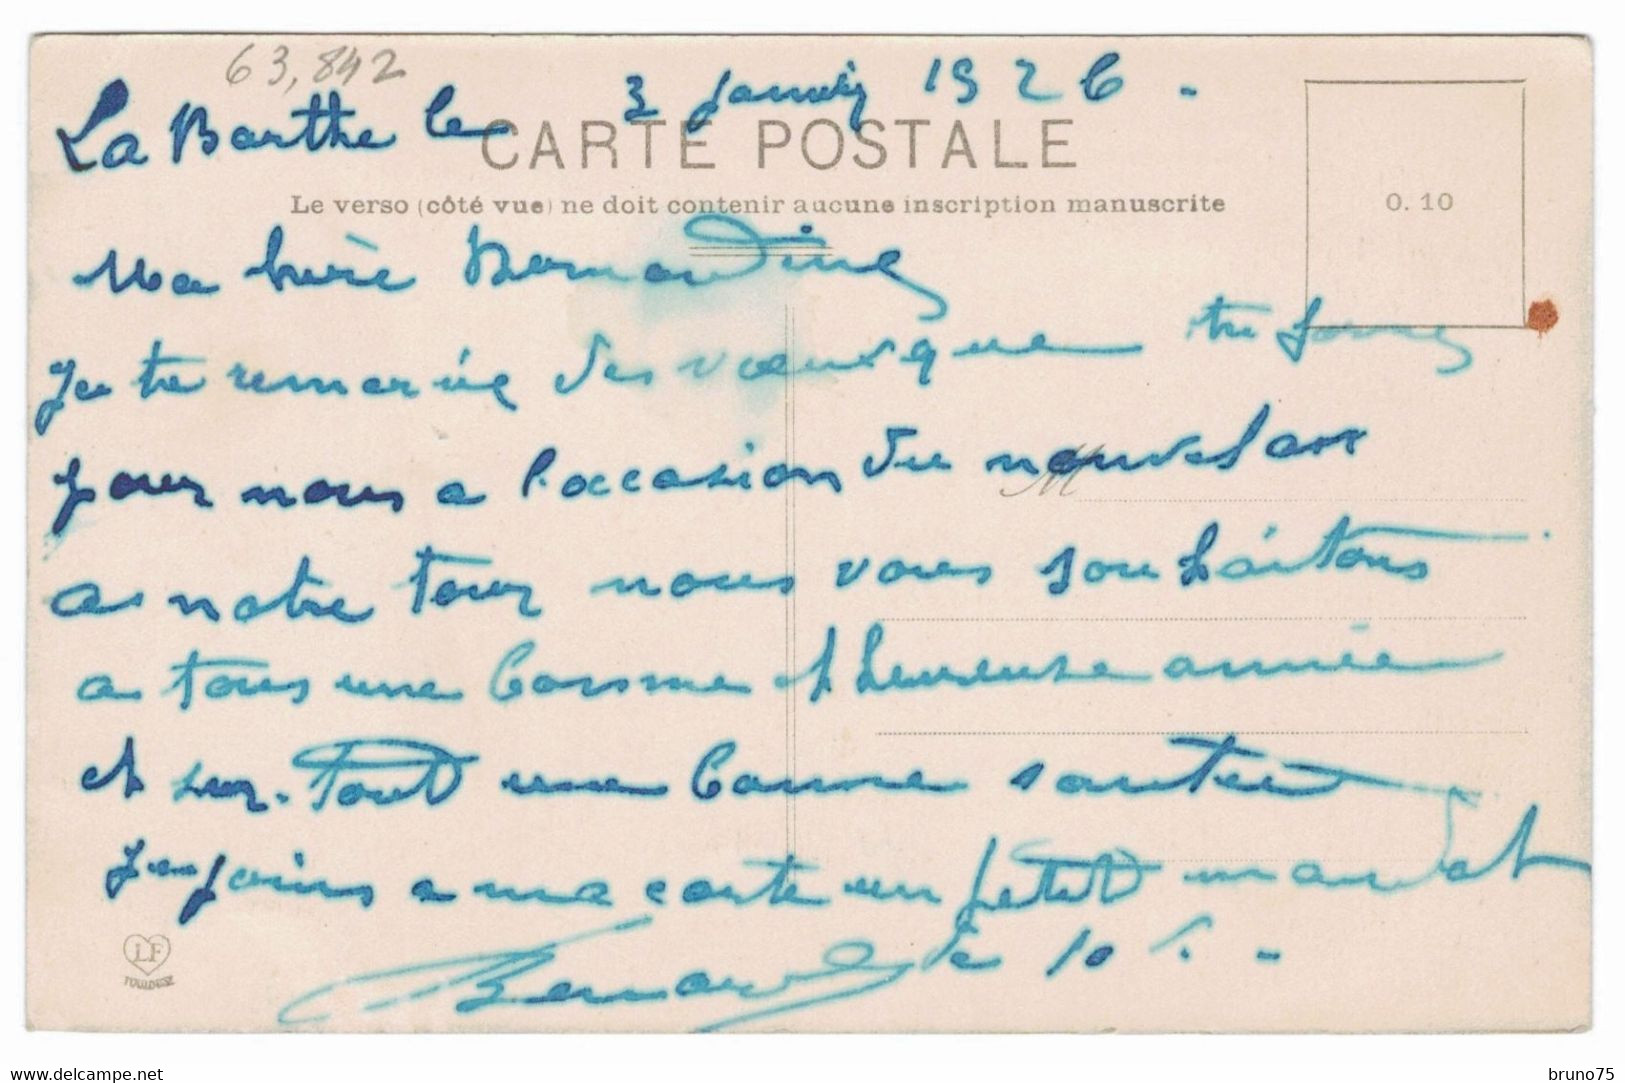 63,842
La Barthe le 3 janvier 1926.
CARTE POSTALE
Le verso (côté vue) ne doit contenir aucune inscription manuscrite
0.10
Ma Bernardine
Je te remercie des vœux que tu formes
pour nous a l'occasion du nouvel an
M
a notre tour nous vous souhaitons
a tous une bonne et heureuse année
et sur-tout une bonne santée
Je joins a ma carte un petit mandat
de 10 f. -
Bernard
LF
TOULOUSE
www.delcampe.net
bruno75